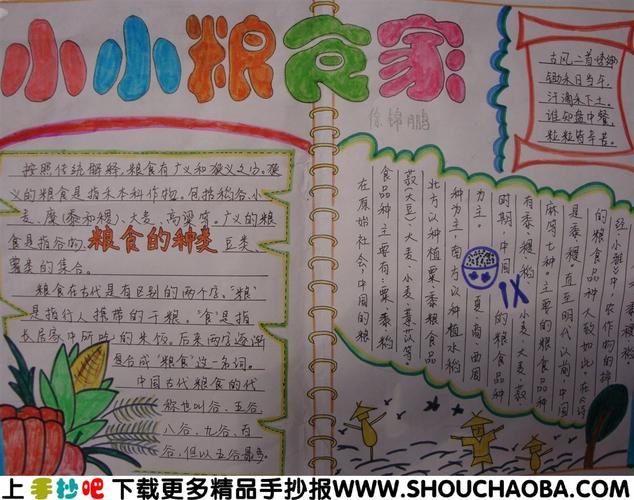 小小粮食家
徐锦鹏
古风二首
锄禾日当午,
汗滴禾下土。
谁知盘中餐,
粒粒皆辛苦。
按照传统解释,粮食有广义和狭义之分。狭
义的粮食是指禾本科作物。包括稻谷、小
麦、(黍和稷)、大麦、高粱等。广义的粮
食是指谷物、豆类、
粮食的种类
薯类的集合。
粮食在古代是有区别的两个字。"粮"
是指行人携带的干粮。"食"是指
长居家中所吃的米饭。后来两字逐渐
合成"粮食"这一名词。
中国古代粮食的代
称也叫谷、五谷、
八谷、九谷、百
谷,但以五谷最多。
的粮食品种大致如此,在
是黍、稷。直至明代以前,中国
麻等七种。主要的粮食品种
有黍、稷、稻、小麦、大麦、菽、
时期,中国的粮食品种
为主。夏商西周
种为主,南方以种植水稻
北方以种植粟、黍粮食品
菽(大豆)、大麦、小麦、薏苡等。
食品种主要有:粟、黍、稻、
在原始社会,中国的粮
上手抄吧 下载更多精品手抄报WWW.SHOUCHAOBA.COM